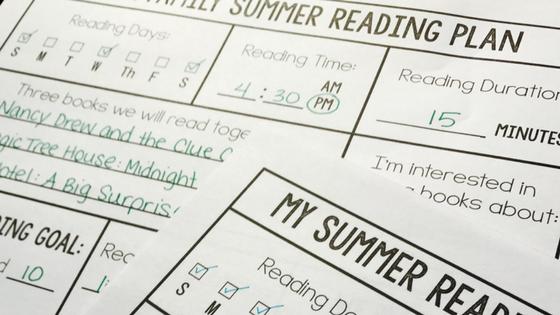 FAMILY SUMMER READING PLAN
Reading Days:
S M T W Th F S
Reading Time:
4:30 AM
PM
Reading Duration
15 MINUTES
Three books we will read toge
Nancy Drew and the Clue
gic Tree House: Midnight
otel: A Big Surpris
I'm interested in
books about:
ING GOAL:
d 10
Rec
1:
MY SUMMER READ
Reading Da
S M